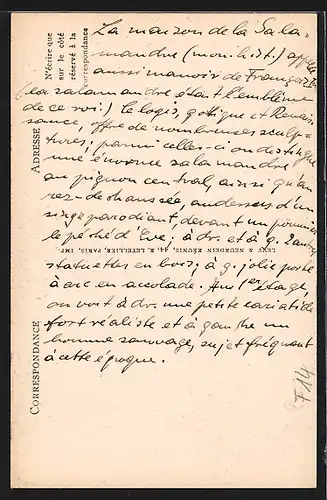 La maison de la Sala-
mandre (mon. hist.) appelé
aussi manoir de François Ier
(la salamandre étant l'emblème
de ce roi). Le logis, gothique et Renais-
sance, offre de nombreuses sculp-
tures; parmi celles-ci on distingue
une énorme salamandre
au pignon central, ainsi qu'au
rez-de-chaussée, au dessus d'un
singe parodiant, devant un pommier
le péché d'Eve. à dr. et à g. 2 autres
statuettes en bois; à g. jolie porte
à arc en accolade. Au 1er étage,
on voit à dr. une petite cariatide
fort réaliste et à gauche un
homme sauvage, sujet fréquent
à cette époque.
N'écrire que
sur le côté
réservé à la
correspondance
ADRESSE
LEVY & NEURDEIN RÉUNIS, 44, R. LETELLIER, PARIS, IMP.
CORRESPONDANCE
F14